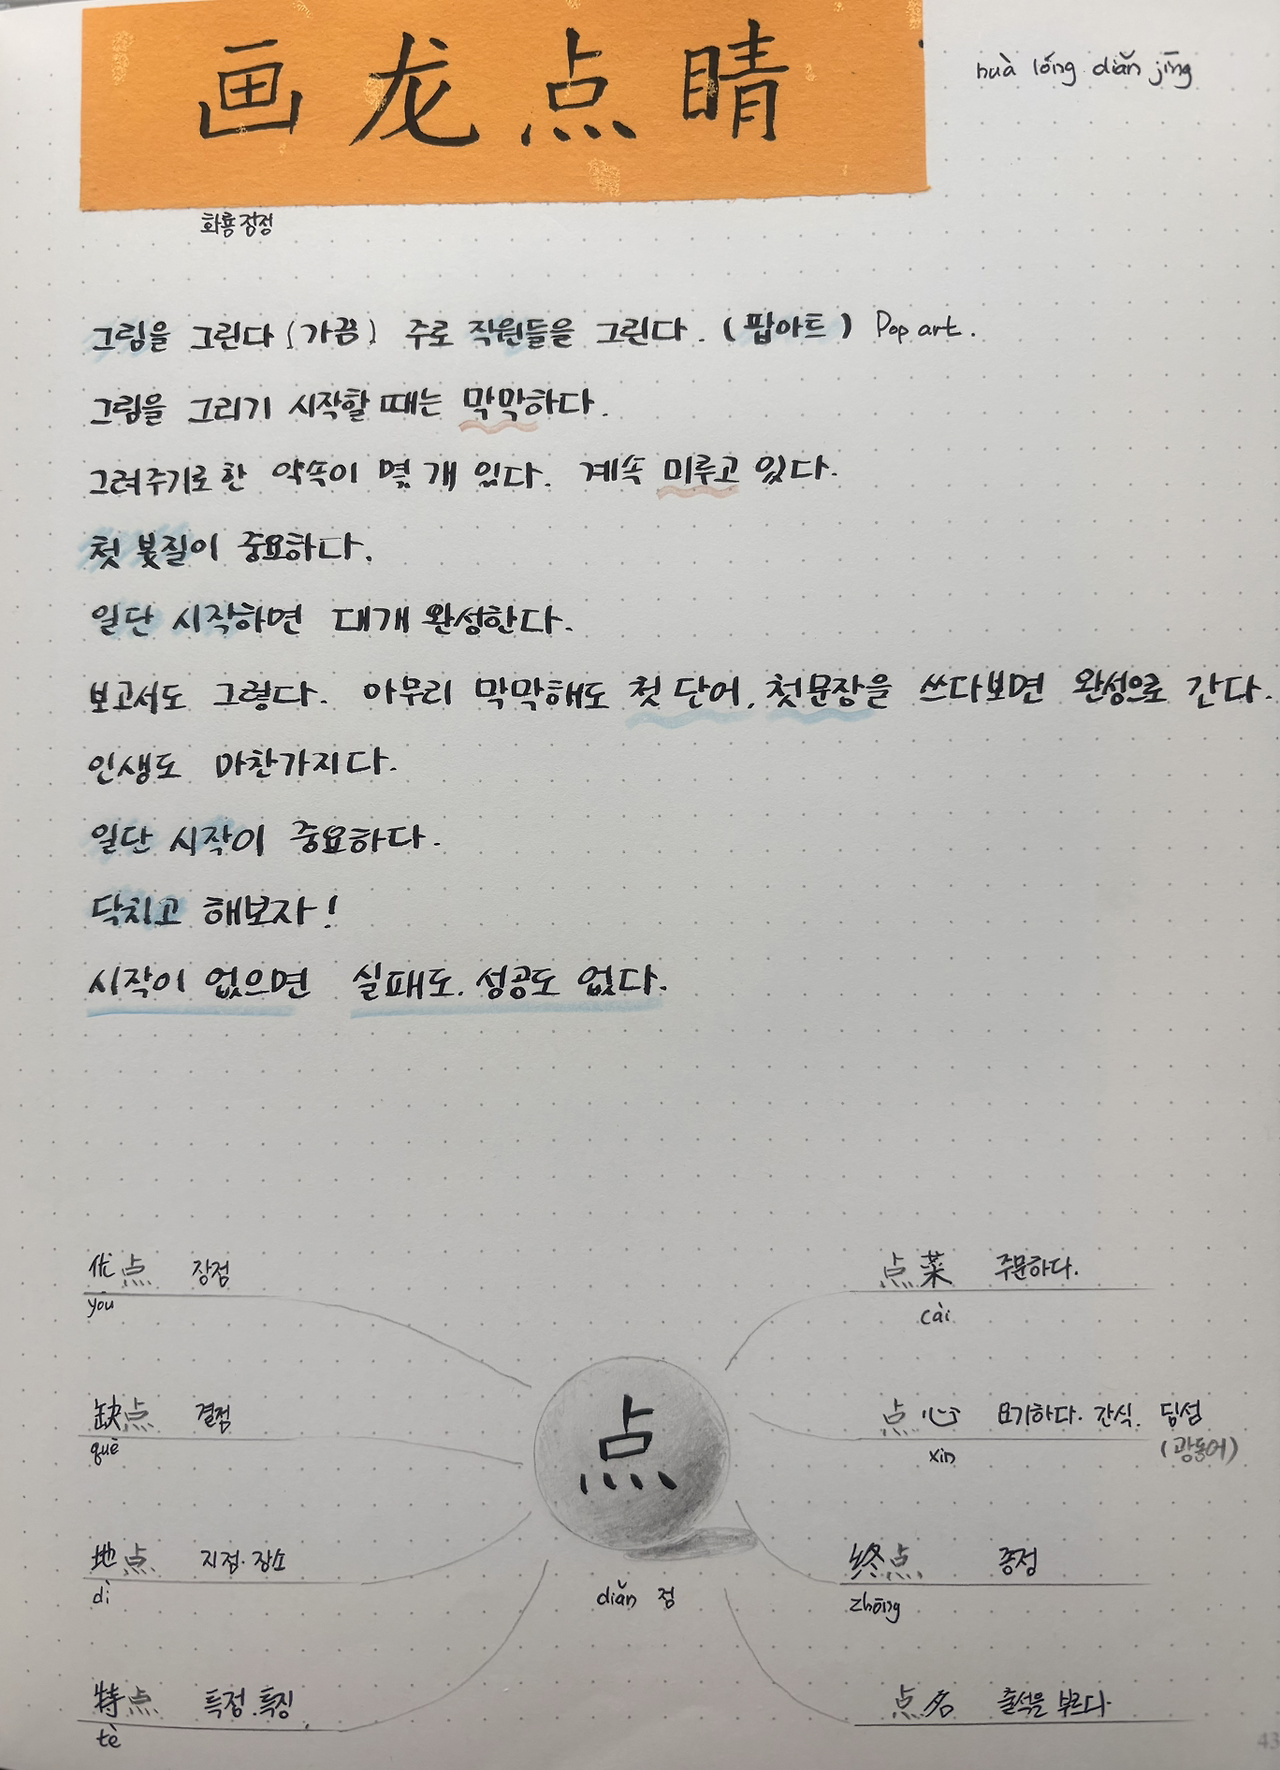 画龙点睛
huà lóng diǎn jīng
화룡점정
그림을 그린다 (가끔) 주로 직원들을 그린다. (팝아트) Pop art.
그림을 그리기 시작할 때는 막막하다.
그려주기로 한 약속이 몇 개 있다. 계속 미루고 있다.
첫 붓질이 중요하다.
일단 시작하면 대개 완성한다.
보고서도 그렇다. 아무리 막막해도 첫 단어, 첫문장을 쓰다보면 완성으로 간다.
인생도 마찬가지다.
일단 시작이 중요하다.
닥치고 해보자!
시작이 없으면 실패도. 성공도 없다.
优点 장점
yōu
缺点 결점
quē
地点 지점. 장소
dì
特点 특점. 특징.
tè
点
diǎn 점
点菜 주문하다.
cài
点心 요기하다. 간식. 딤섬
xīn (광동어)
终点 종점
zhōng
点名 출석을 부르다.
43